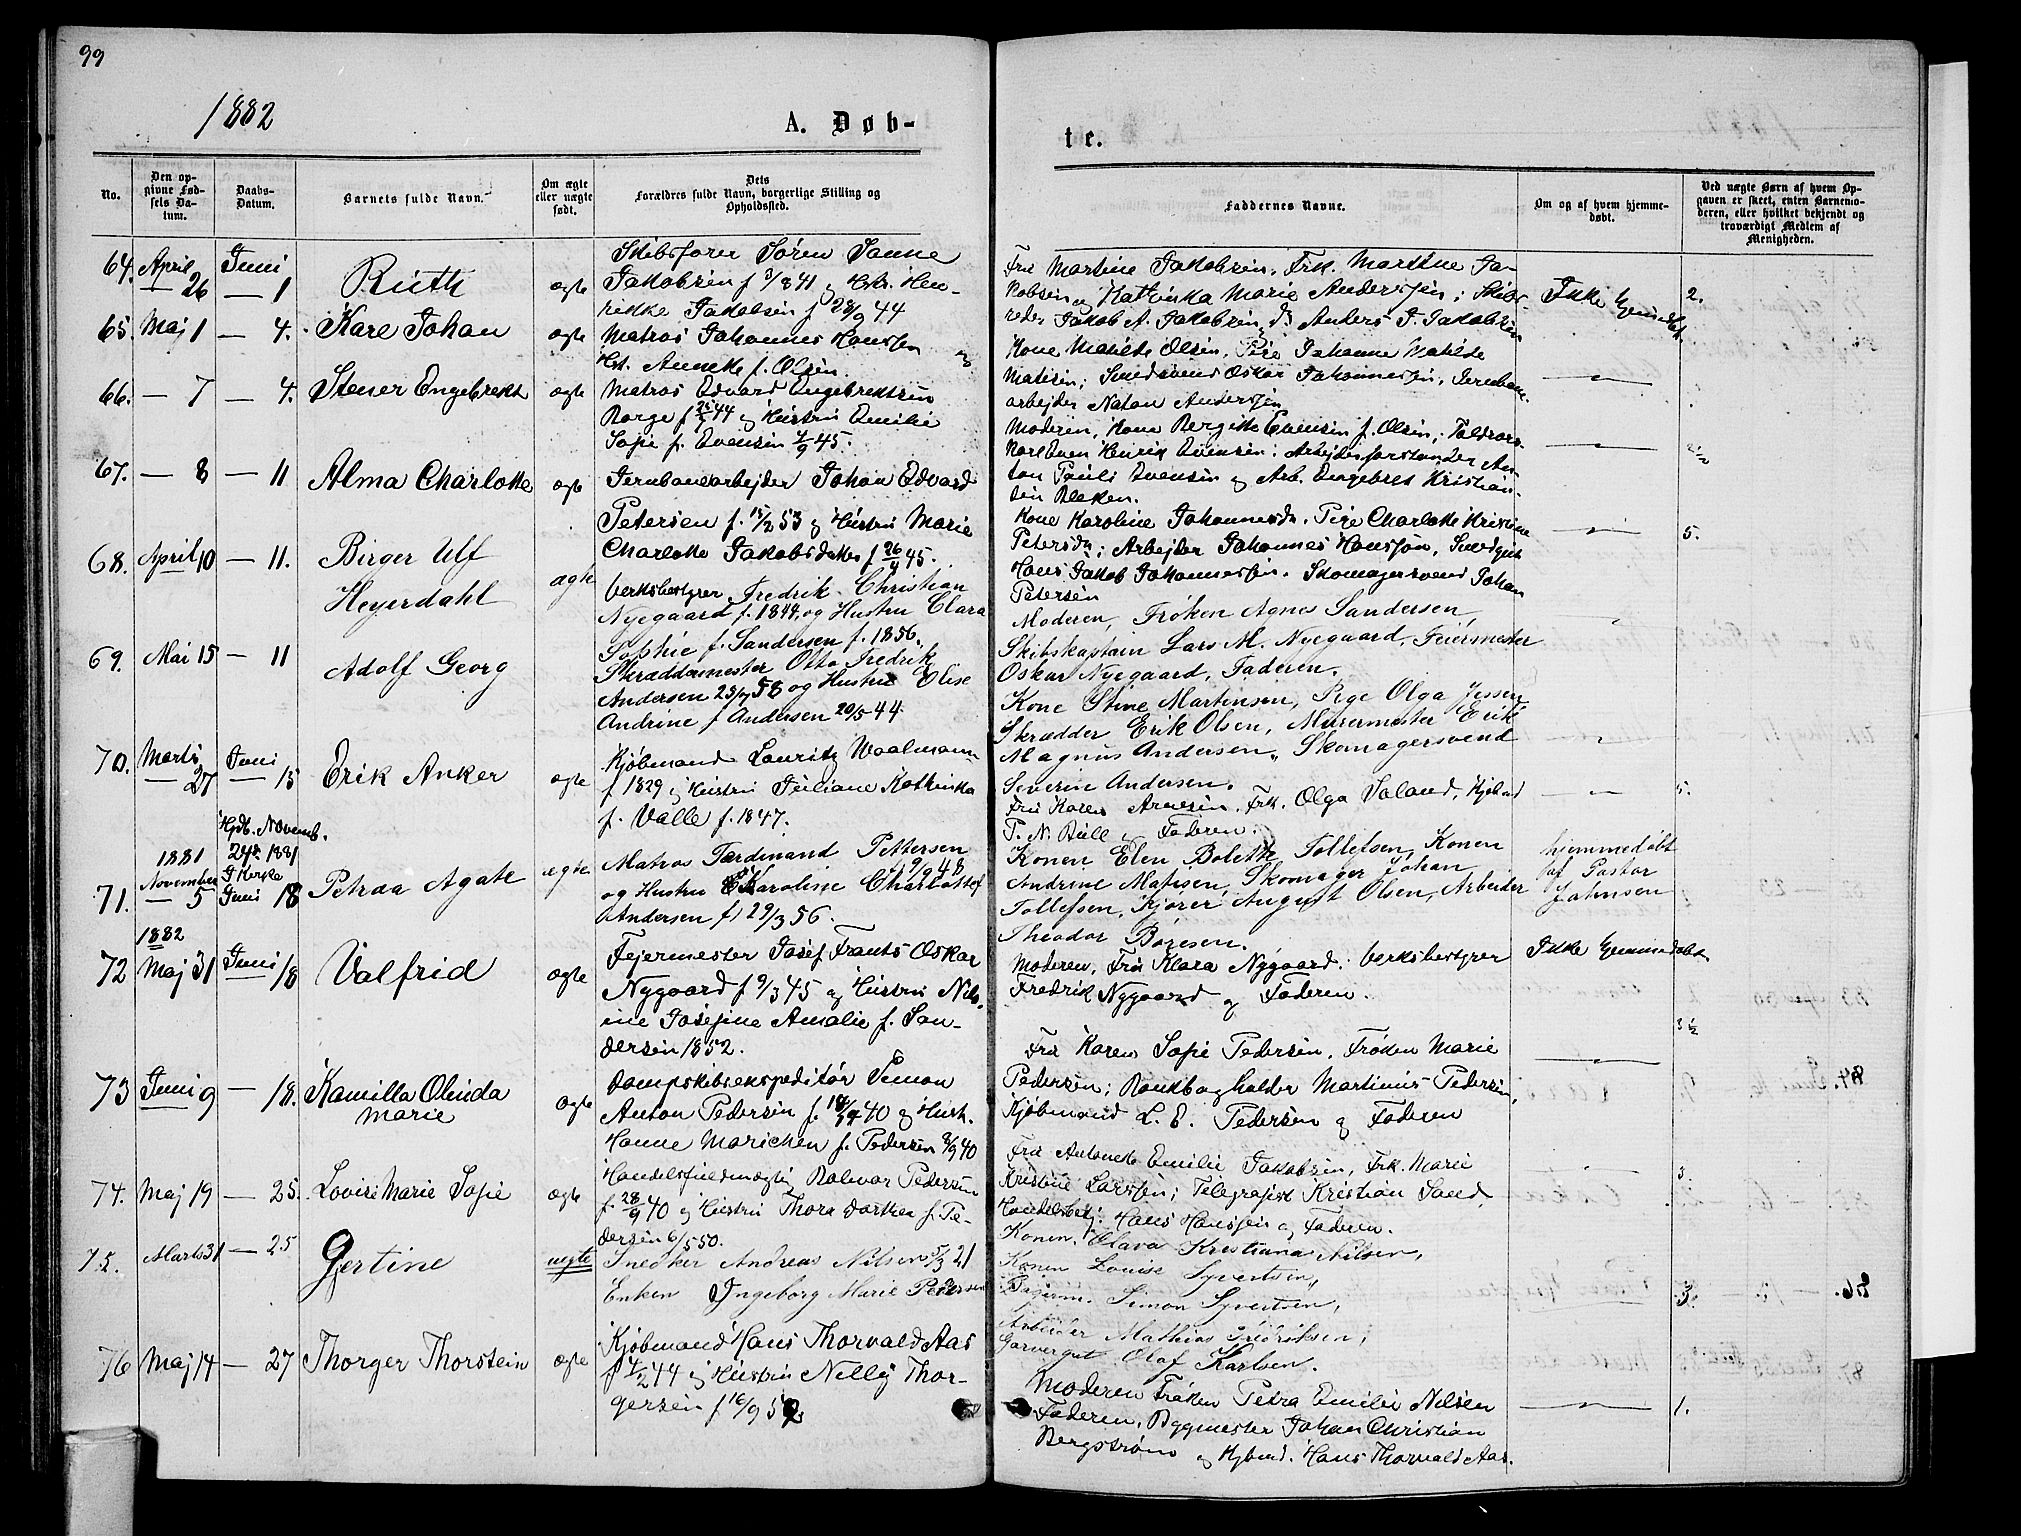 99
1882
A. Døb-
te.
No.
Den op-
givne Fød-
sels Da-
tum.
Daabs-
Datum.
Barnets fulde Navn.
Om ægte
eller uægte
født.
Dets
Forældres fulde Navn, borgerlige Stilling og
Opholdssted.
Faddernes Navne.
Om og af hvem hjemme-
døbt.
Ved uægte Børn af hvem Op-
gaven er skeet, enten Barnemo-
deren, eller hvilket bekjendt og
troværdigt Medlem af
Menigheden.
64. April 26 Juni 1 Ruth ægte
Skibsfører Søren Sanne
Jakobsen f 3/8 41 og Hstr. Hen-
rikke Jakobsen f 28/9 44
Fru Martine Jakobsen, Frk. Martine Ja-
kobsen og Kathinka Marie Andersen; Skibs-
reder Jakob A. Jakobsen, do Anders J. Jakobsen
Ikke hjemmedøbt
2.
65. Maj 1 — 4. Kare Johan ægte
Matros Johannes Hanssen og
Hst. Annette f. Olsen.
Kone Matilde Olsen, Pige Johanne Matilde
Matisen; Smedsvend Oskar Johannessen, Jernbane-
arbejder Natan Andersen
66. — 7 — 4. Stener Engebrekt ægte
Matros Edvard Engebrektsen
Borge f 25/1 44 og Hustru Emilie
Sofie f. Evensen 4/9 45.
Moderen, Kone Bergitte Evensen f. Olsen; Toldvars-
Karl Even Henrik Evensen. Arbejdsforstander An-
ton Pauli Evensen og Arb. Engebret Kristian-
sen Bleken.
2 1/2
67. — 8 — 11 Alma Charlotte ægte
Jernbanearbejder Johan Edvard
Petersen f. 15/2 53 og Hustru Marie
Charlotte Jakobsdatter f 26/4 45.
Kone Karoline Johannesdr. Pige Charlotte Kristine
Petersdr; Arbejder Johannes Hanssøn, Smedgut
Hans Jakob Johannessen. Skomagersvend Johan
Petersen
5.
68. April 10 — 11. Birger Ulf
Heyerdahl
ægte
Verksbestyrer Fredrik Christian
Nyegaard f. 1844, og Hustru Clara
Sophie f. Sandersen f. 1856.
Moderen, Frøken Agnes Sandersen,
Skibskaptain Lars M. Nyegaard, Feiermester
Oskar Nyegaard, Faderen.
69. Mai 15 — 11 Adolf Georg
Skræddermester Otto Fredrik
Andersen 23/7 58 og Hustru Elise
Andrine f Andersen 20/5 44
Kone Stine Martinsen, Pige Olga Jessen
Skrædder Erik Olsen, Murermester Erik
Magnus Andersen, Skomagersvend
Severin Andersen.
70. Marts 27 Juni 15 Erik Anker ægte
Kjøbmand Lauritz Waalmann
f 1829 og Hustru Juliane Kathinka
f. Valle f. 1847.
Fru Karen Arnesen. Frk. Olga Soland, Kjøbmd
P. N. Bull og Faderen.
5.
71. 1881 November 5
Hjdb. Novemb.
1881
I Kirke
Juni 18 Petraa Agate ægte
Matros Ferdinand Pettersen
f 9/9 48
og Hustru Karoline Charlotte f
Andersen f. 29/3 56.
Konen Elen Bolette Tollefsen, Konen
Andrine Matisen, Skomager Johan
Tollefsen, Kjører August Olsen, Arbeider
Theodor Børesen.
hjemmedøbt
af Pastor
Johnson
72 1882 Maj 31 Juni 18 Valfrid ægte
Fejermester Josef Frants Oskar
Nygaard f 9/3 45 og Hustru Nils-
ine Josefine Amalie f. San-
dersen 1852.
Moderen, Fru Klara Nygaard. Verksbestyrer
Fredrik Nygaard og Faderen.
Ikke hjemmedøbt
3 1/2
73 Juni 9 — 18. Kamilla Olinda
Marie
ægte
Dampskibsekspeditør Simon
Anton Pedersen f. 40 og Hust.
Hanne Marichen f. Pedersen 8/9 40
Fru Karen Sofie Pedersen, Frøken Marie
Pedersen; Bankbogholder Martinius Pedersen,
Kjøbmand L. E. Pedersen og Faderen
74. Maj 19 — 25. Lovise Marie Sofie ægte
Handelsfuldmægtig Bolevar Pedersen
f. 28/9 40 og Hustru Thora Dorthea f. Pe-
dersen 6/5 50.
Fru Antonette Emilie Jakobsen, Frk. Marie
Kristine Larssen; Telegrafist Kristian Sand,
Handelsbetj. Hans Hanssen og Faderen.
3
75. Marts 31 — 25 Gjertine uægte
Snedker Andreas Nilsen 5/3 21
Enken Ingeborg Marie Pedersen
Konen, Olava Kristiana Nilsen,
Konen Louise Syvertsen,
Simon Syvertsen,
Arbeider Mathias Fredriksen,
Garvergut Olaf Karlsen.
3.
76 Maj 14 — 27 Thorger Thorstein ægte
Kjøbmand Hans Thorvald Aas
f 4/2 44 og Hustru Nelly Thor-
gersen f 16/9 52
Moderen Frøken Petra Emilie Nilsen
Faderen, Bygmester Johan Christian
Bergstrøm og Kjbmd. Hans Thorvald Aas.
1.